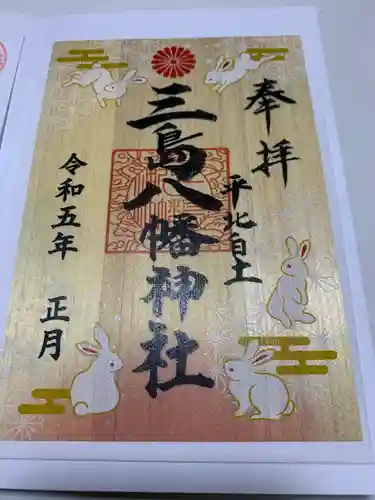 奉拝
平北白土
三島八幡神社
令和五年 正月